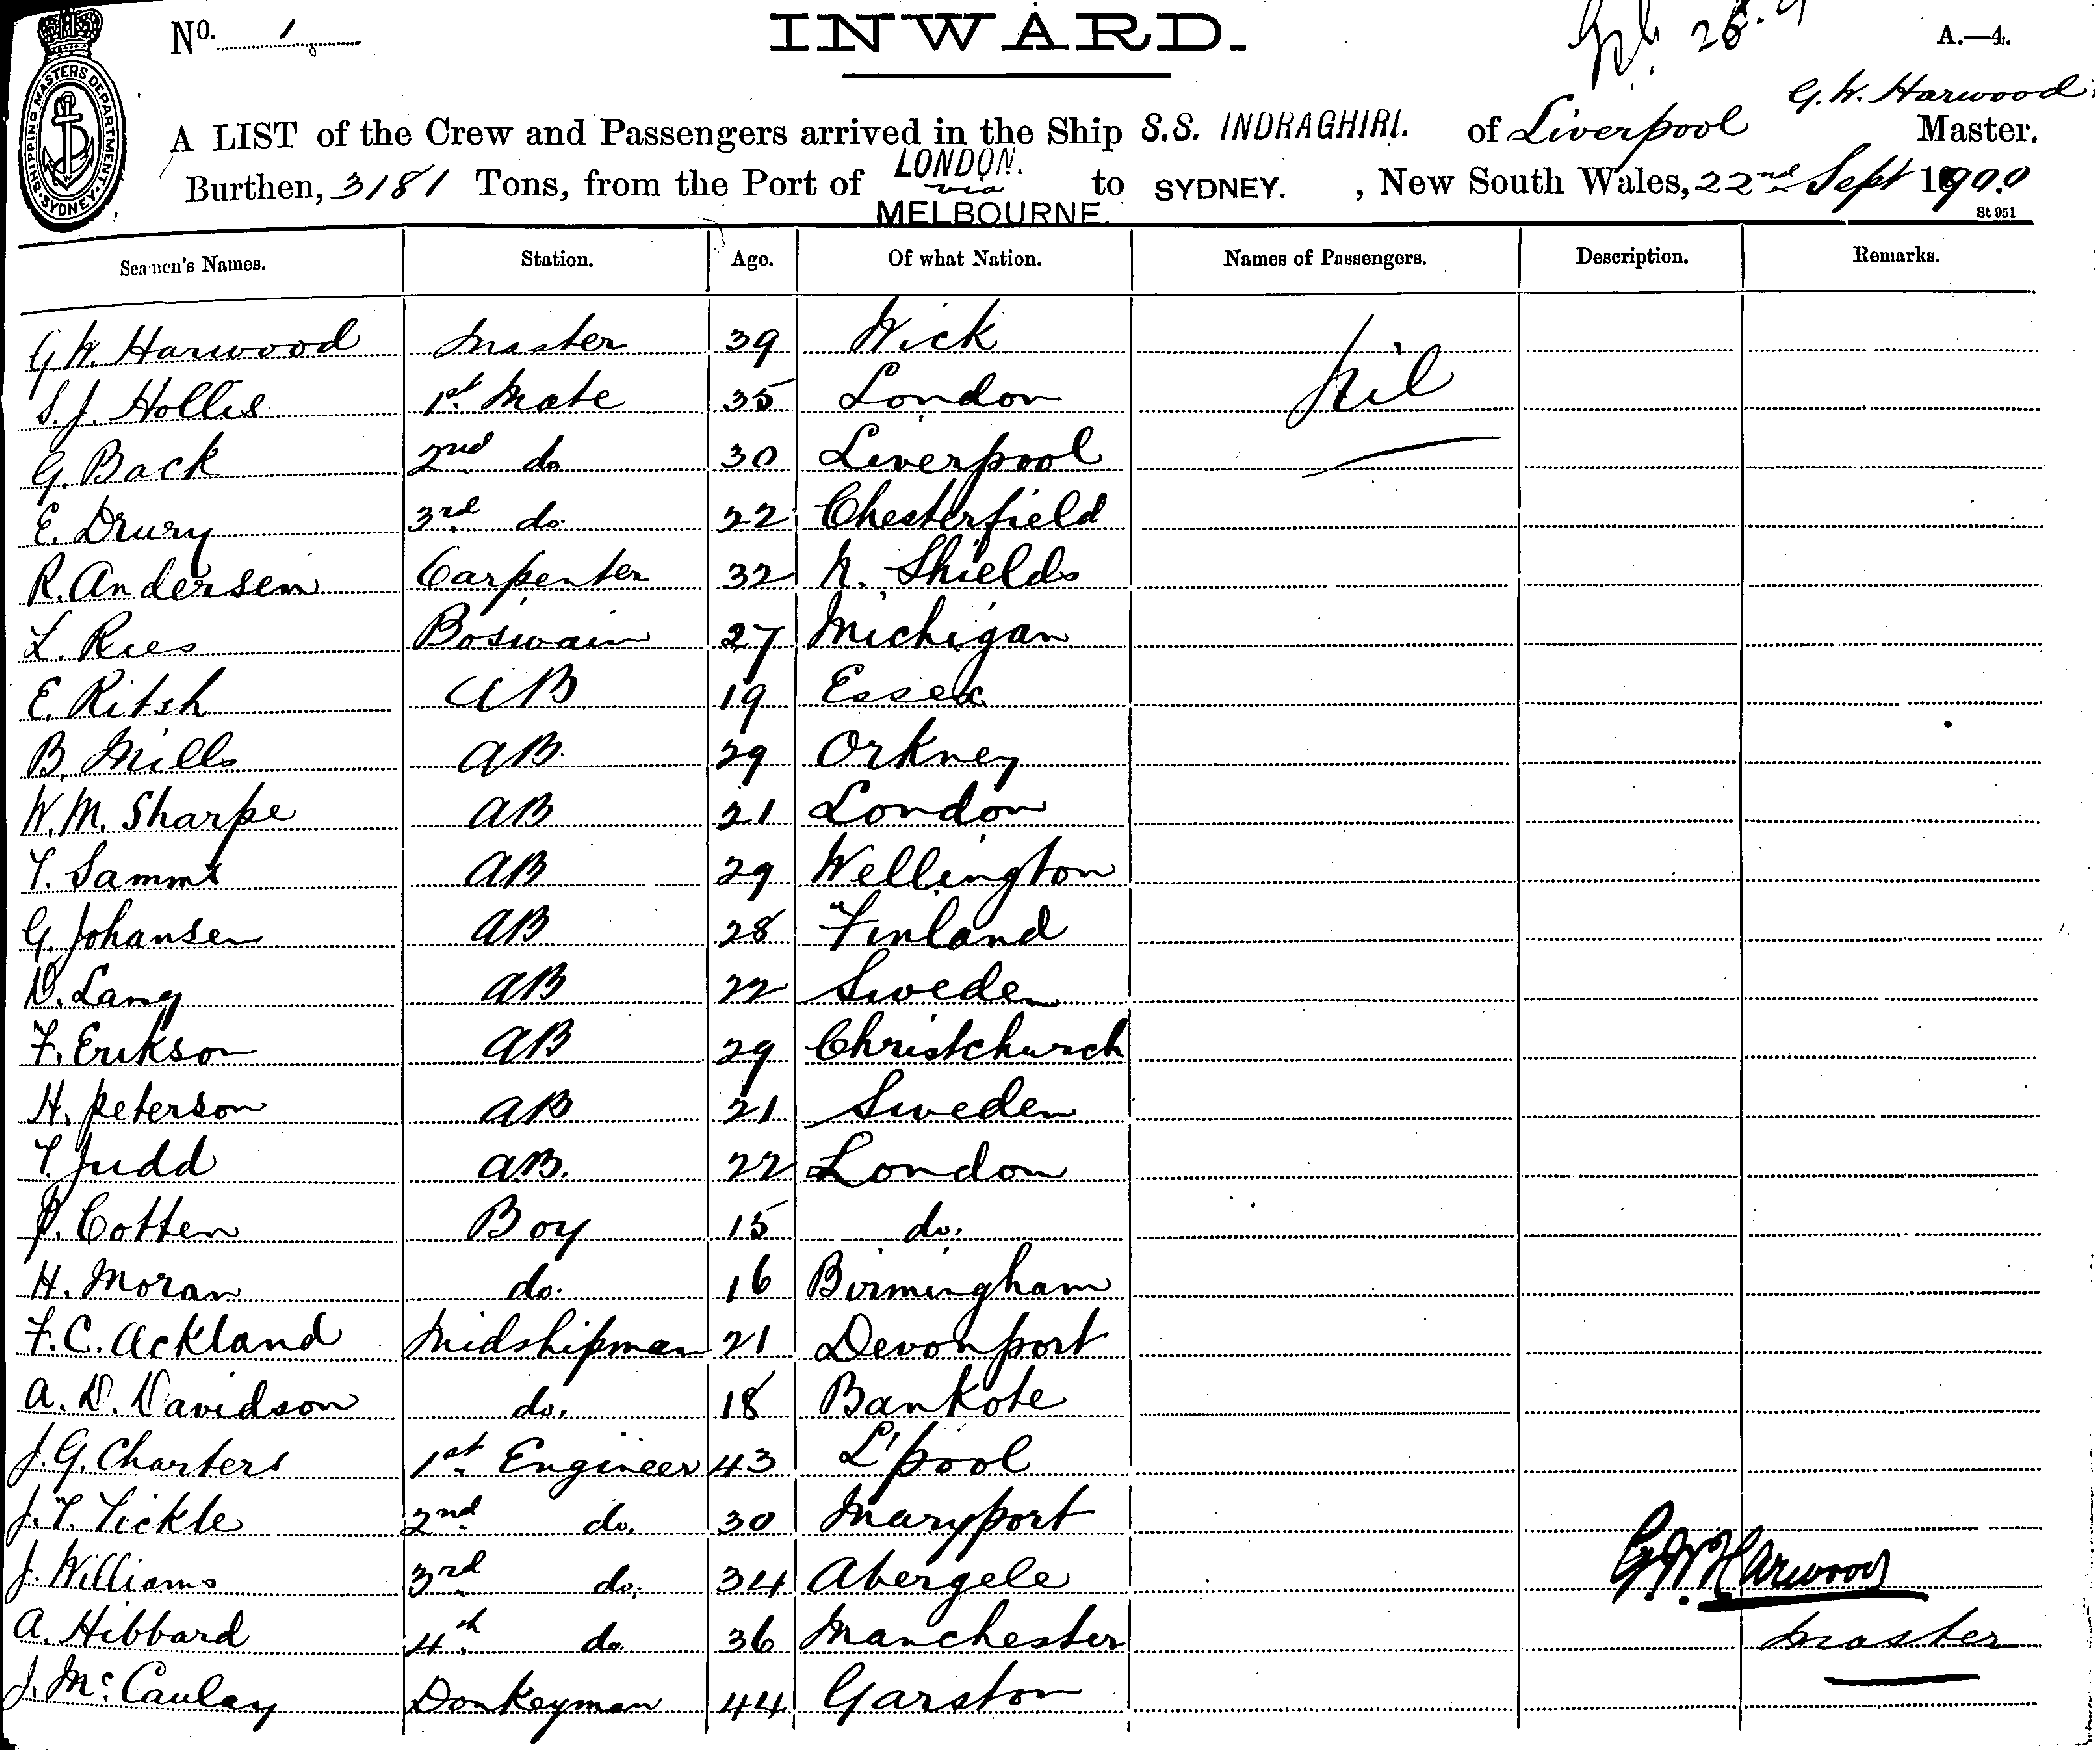 No. 1.
INWARD.
26.9
A.—4.
SHIPPING MASTERS DEPARTMENT SYDNEY
G. W. Harwood
A LIST of the Crew and Passengers arrived in the Ship S.S. INDRAGHIRI. of Liverpool Master.
Burthen, 3181 Tons, from the Port of LONDON. via MELBOURNE. to SYDNEY. , New South Wales, 22nd Sept 1900
St 951
Seamen's Names. Station. Age. Of what Nation. Names of Passengers. Description. Remarks.
G W. Harwood Master 39 Wick Nil
S. J. Hollis 1st Mate 35 London
G. Back 2nd do 30 Liverpool
E. Drury 3rd do. 22 Chesterfield
R. Andersen Carpenter 32 N. Shields
L. Rees Boswain 27 Michigan
E. Ritsh AB 19 Essex
B. Mills AB. 29 Orkney
W. M. Sharpe AB 21 London
T. Samms AB 29 Wellington
G. Johansen AB 28 Finland
D. Lang AB 22 Sweden
F. Erikson AB 29 Christchurch
H. Peterson AB 21 Sweden
T. Judd AB. 22 London
P. Cotten Boy 15 do.
H. Moran do. 16 Birmingham
F. C. Ackland Midshipman 21 Devonport
A. D. Davidson do. 18 Bankote
J. G. Charters 1st Engineer 43 L'pool
J. T. Tickle 2nd do. 30 Maryport
J. Williams 3rd do. 34 Abergele G. W. Harwood
A. Hibbard 4th do 36 Manchester Master
J. McCaulay Donkeyman 44 Garston